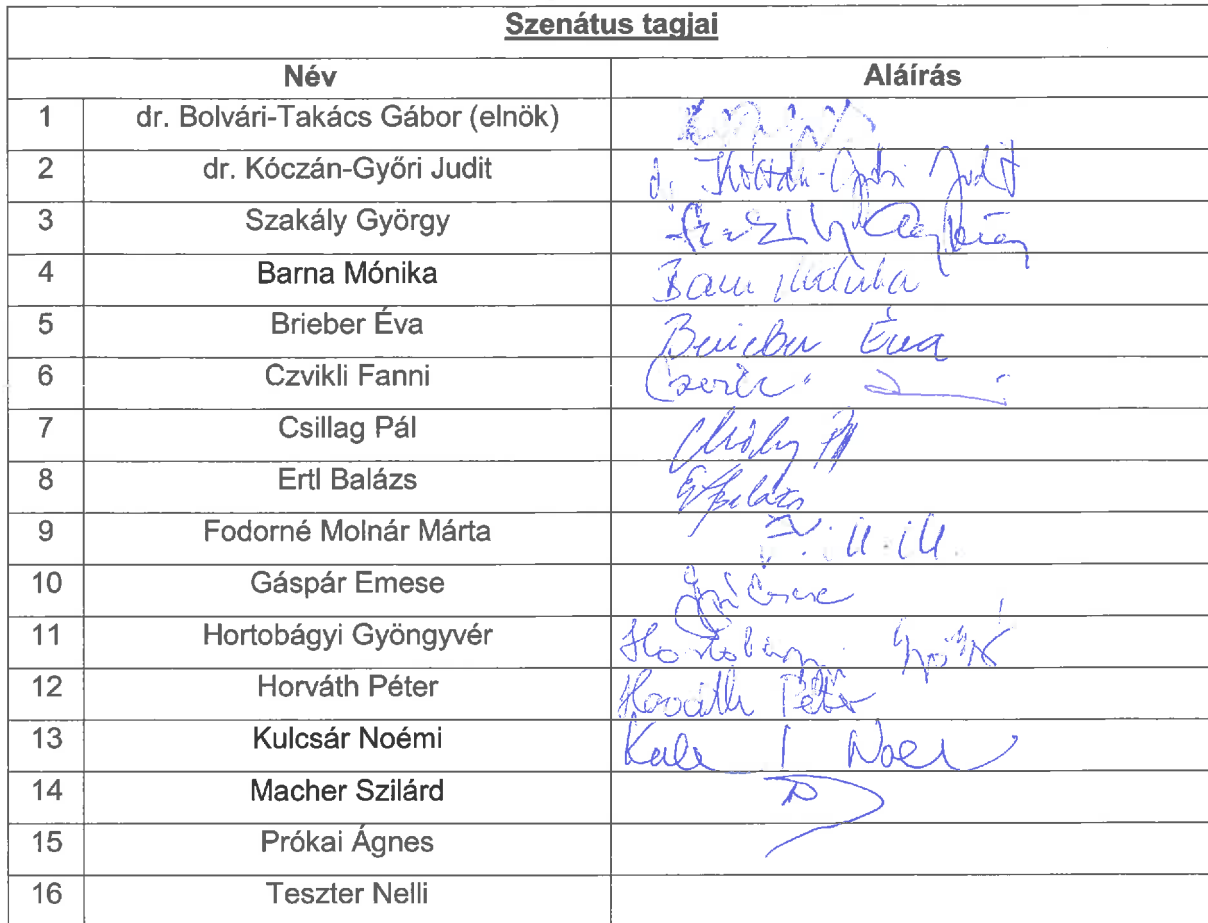 Szenátus tagjai
Név Aláírás
1 dr. Bolvári-Takács Gábor (elnök)
2 dr. Kóczán-Győri Judit d. Kóczán-Győri Judit
3 Szakály György
4 Barna Mónika Barna Mónika
5 Brieber Éva Brieber Éva
6 Czvikli Fanni
7 Csillag Pál
8 Ertl Balázs
9 Fodorné Molnár Márta F. M. M.
10 Gáspár Emese
11 Hortobágyi Gyöngyvér
12 Horváth Péter Horváth Péter
13 Kulcsár Noémi
14 Macher Szilárd
15 Prókai Ágnes
16 Teszter Nelli